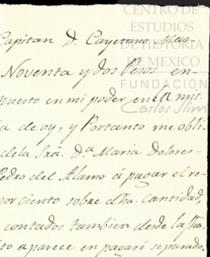 CENTRO DE
ESTUDIOS
DE HISTORIA
DE MÉXICO
FUNDACIÓN
Carlos Slim
Capitan D. Cayetano
Noventa y dos Pesos en
puesto en mi poder en la mis
ia de oy, y Portanto me obli
dela Sra. Da. Maria Dolores
Pedro del Alamo á pagar el re
por ciento sobre dha. Cantidad,
contados tambien desde la fha.
ito aparece en pagaré separado.